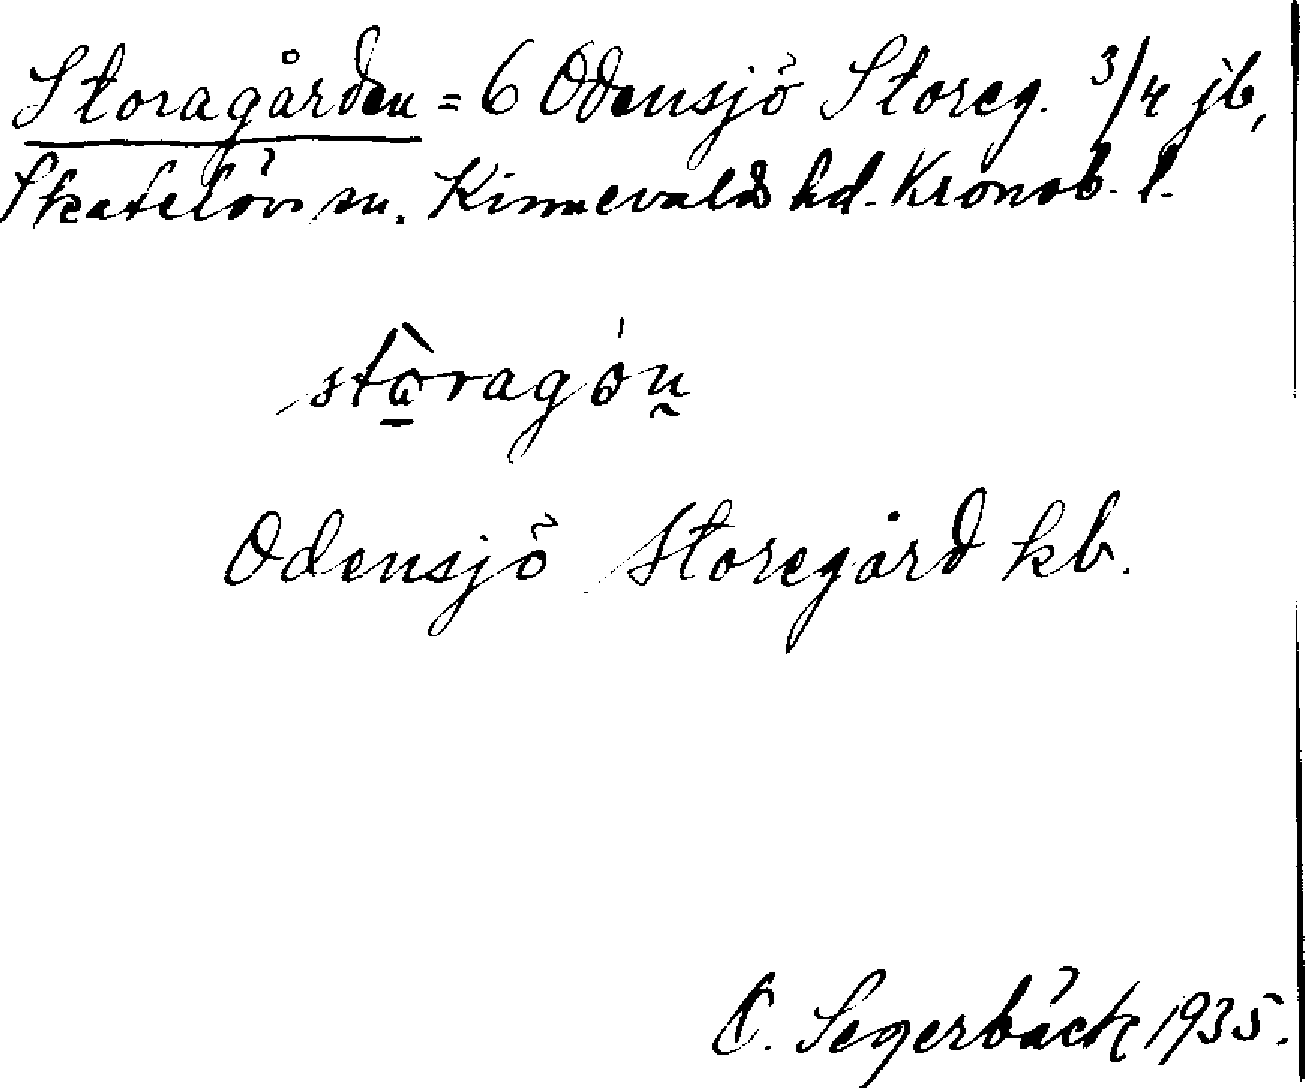 Storagården = 6 Odensjö Storeg. 3/4 jb,
Skatelövs sn. Kinnevalds hd. Kronob. l.
Odensjö Storegård kb.
C. Segerbäck 1935.